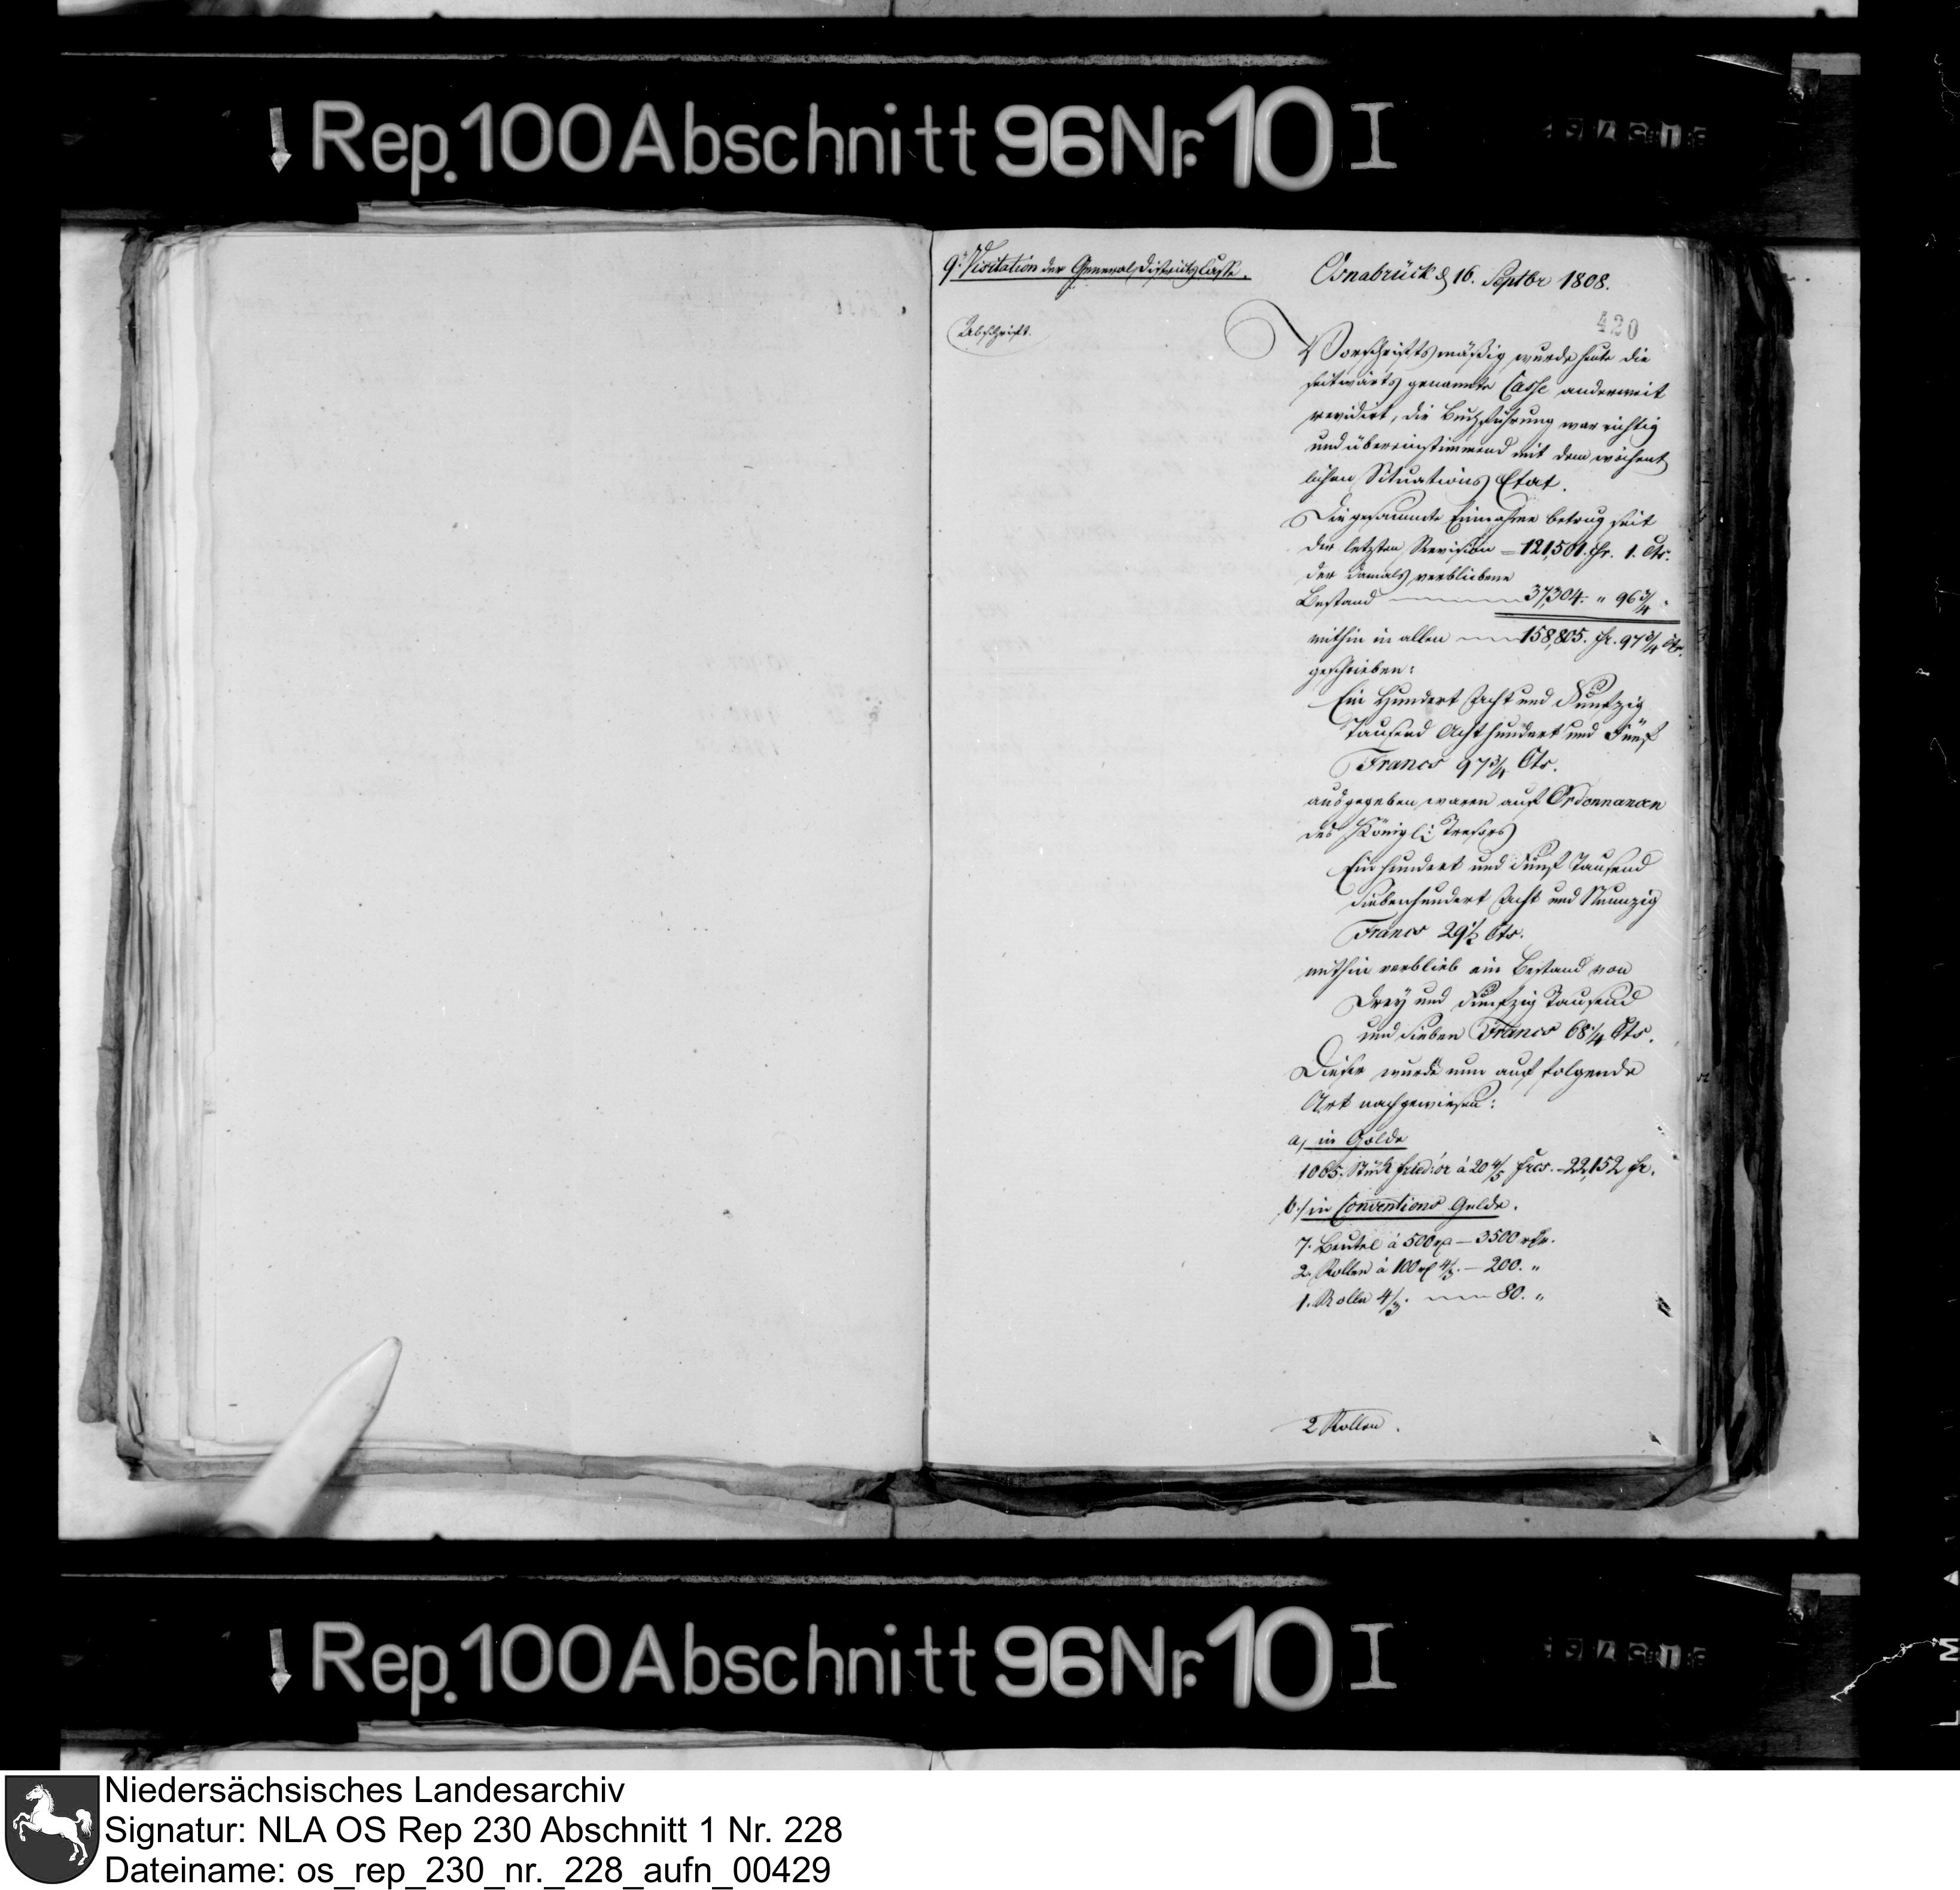 Rep. 100 Abschnitt 96 Nr. 10 I
9te Visitation der General Districts Casse.
Abschrift.
Osnabrück d 16. Septbr 1808.
420
Vorschriftsmäßig wurde heute die
seitwärts genannte Casse anderweit
revidirt, die Buchführung war richtig
und übereinstimmend mit dem wöchent
lichen Situations Etat.
Die gesammte Einnahme betrug seit
der letzten Revision — 121,501. fr. 1. Cts.
der damals verbliebene
Bestand — 37,304. " 96 3/4 "
mithin in allen — 158,805. fr. 97 3/4 Cts.
geschrieben:
Ein Hundert Acht und Funfzig
Tausend Acht hundert und Fünf
Francs 97 3/4 Cts.
ausgegeben waren auf Ordonnancen
des Königl: Tresors
Ein hundert und Fünf Tausend
Siebenhundert Acht und Neunzig
Francs 29 1/2 Cts.
mithin verblieb ein Bestand von
Drey und Funfzig Tausend
und Sieben Francs 68 1/4 Cts.
Dieser wurde nun auf folgende
Art nachgewiesen:
a, in Golde
1065. Stück Fried:or à 20 4/5 frcs. — 22,152 fr.
b./ in Conventions Gelde.
7. Beutel à 500 rh — 3500 rthr.
2. Rollen à 100 rh 4/3. — 200. "
1. Rolle 4/3. — 80. "
2 Rollen.
Rep. 100 Abschnitt 96 Nr. 10 I
Niedersächsisches Landesarchiv
Signatur: NLA OS Rep 230 Abschnitt 1 Nr. 228
Dateiname: os_rep_230_nr._228_aufn_00429